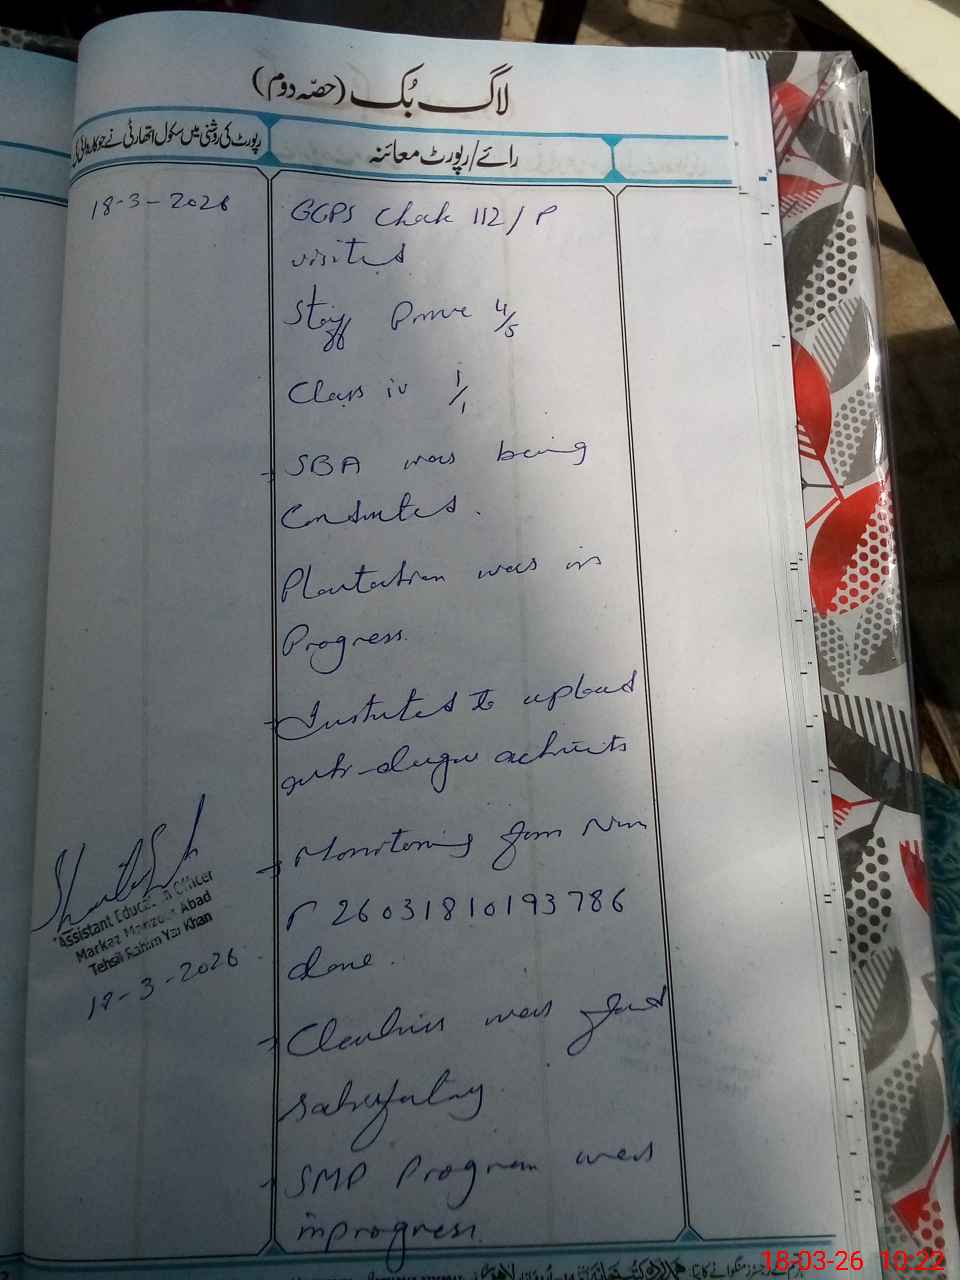 لاگ بُک (حصّہ دوم)
رائے/رپورٹ معائنہ
رپورٹ کی روشنی میں سکول اتھارٹی نے جو کاروائی کی
18-3-2026
GGPS Chak 112/P
visited
Staff 4/5
Class iv 1/1
SBA was being
Conducted.
Plantation was in
Progress.
Instructed to upload
anti-dengue activities
Monitoring form Num
r 26031810193786
done.
Cleanliness was found
satisfactory
SMP Program was
inprogress.
Assistant Education Officer
Markaz Abad
Tehsil Rahim Yar Khan
18-3-2026
18-03-26 10:22